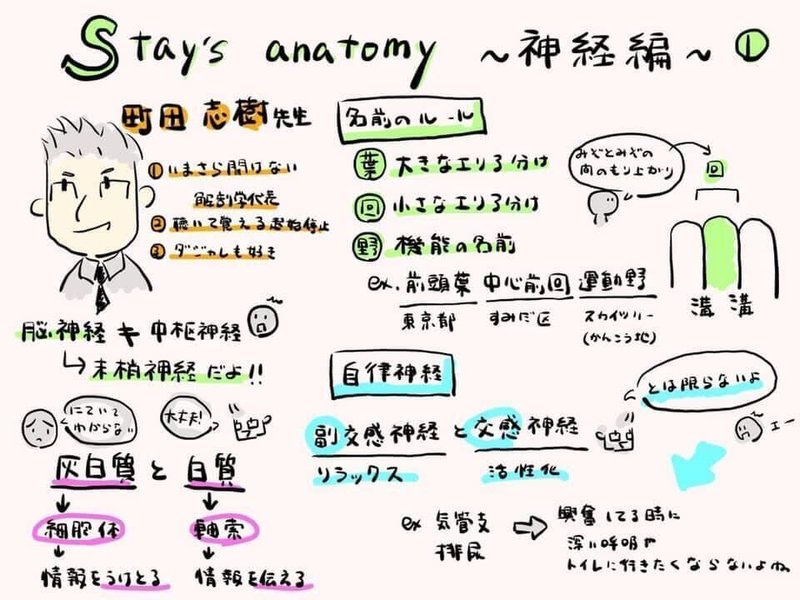 Stay's anatomy ~神経編~ ①
町田志樹先生
① いまさら聞けない
解剖学代表
② 聴いて覚える起始停止
③ ダジャレも好き
脳神経 キ 中枢神経
↳ 末梢神経だよ!!
にていて
わからない
大丈夫!
灰白質と白質
↓ ↓
細胞体 軸索
↓ ↓
情報をうけとる 情報を伝える
名前のルール
葉 大きなエリア分け
回 小さなエリア分け
野 機能の名前
ex. 前頭葉 中心前回 運動野
東京都 すみだ区 スカイツリー
(かんこう地)
みぞとみぞの
間のもり上がり
回
溝 溝
自律神経
副交感神経と交感神経
リラックス 活性化
とは限らないよ
えー
ex 気管支
排尿
⇒ 興奮してる時に
深い呼吸や
トイレに行きたくならないよね。